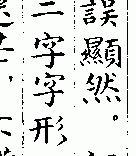 誤顯然。
二字字形